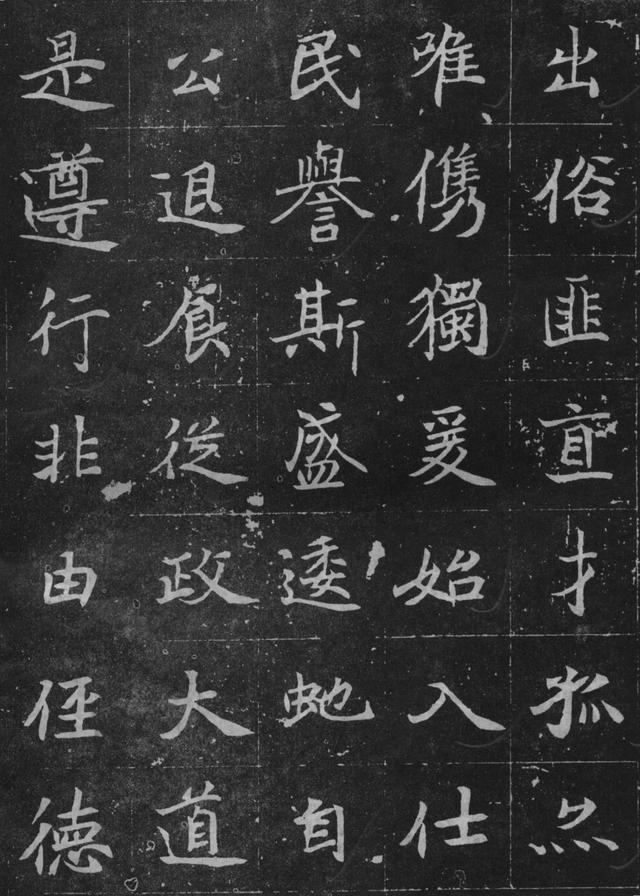 出俗匪直才孤亦
唯儁獨爰始入仕
民譽斯盛逶虵自
公退食從政大道
是遵行非由俓德